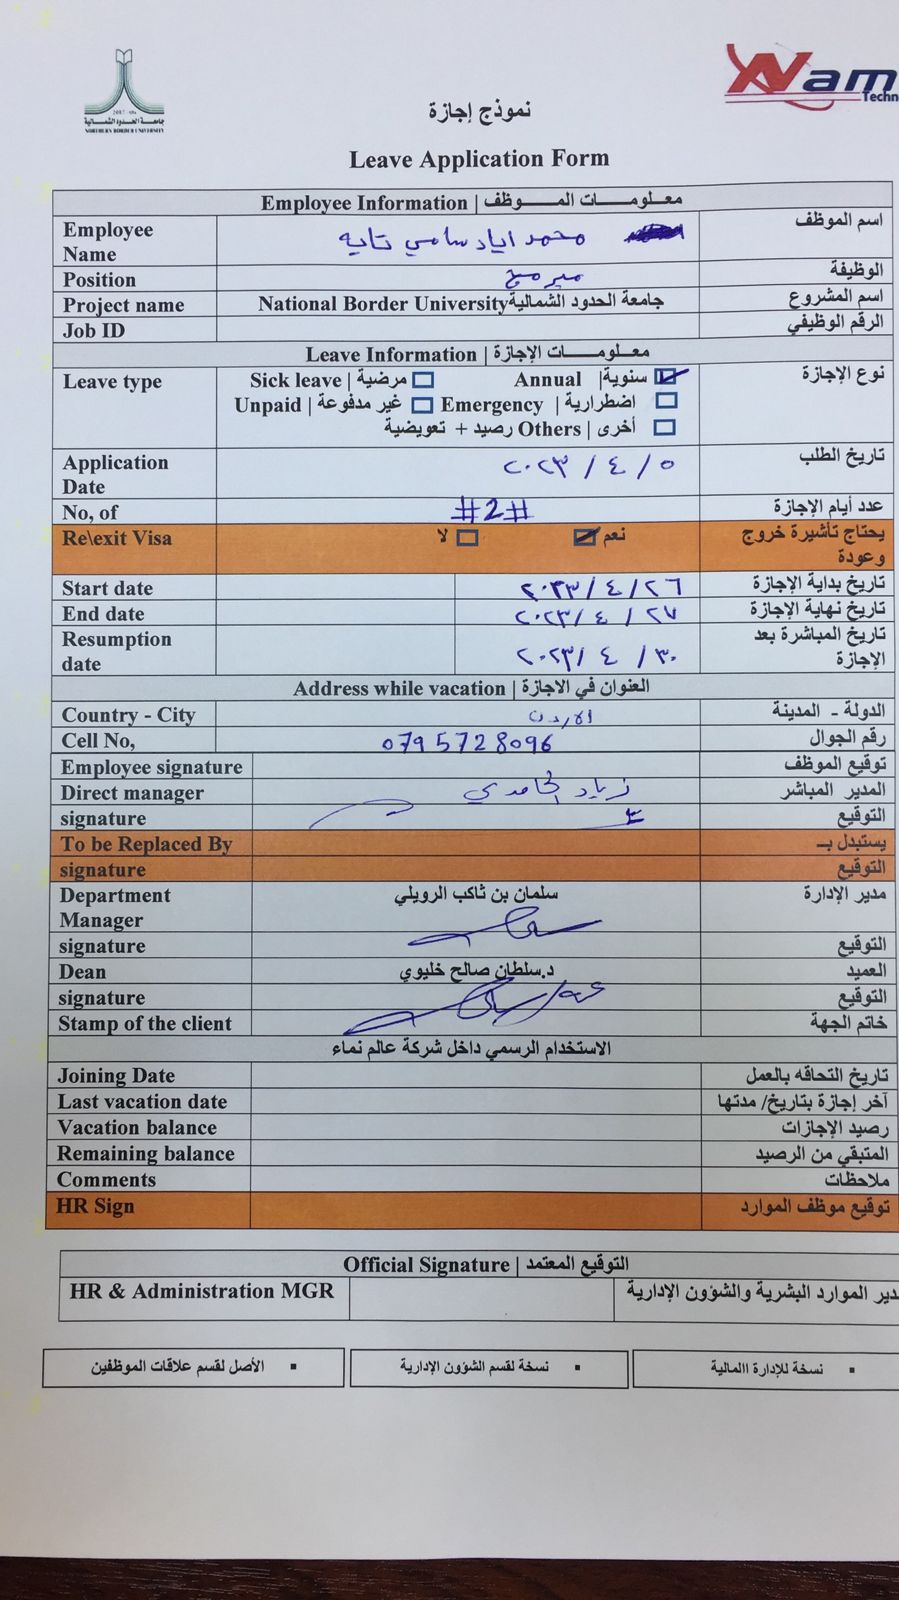 2007
جامعة الحدود الشمالية
NORTHERN BORDER UNIVERSITY
Nam
Techn
نموذج إجازة
Leave Application Form
Employee Information | معلومات الموظف
Employee Name محمد اياد سامي تايه اسم الموظف
Position مبرمج الوظيفة
Project name National Border University جامعة الحدود الشمالية اسم المشروع
Job ID الرقم الوظيفي
Leave Information | معلومات الإجازة
Leave type Sick leave | مرضية Annual | سنوية نوع الإجازة
Unpaid | غير مدفوعة Emergency | اضطرارية
أخرى | Others رصيد + تعويضية
Application Date ٢٠٢٣ / ٤ / ٥ تاريخ الطلب
No, of #2# عدد أيام الإجازة
Re\exit Visa لا نعم يحتاج تأشيرة خروج وعودة
Start date ٢٠٢٣ / ٤ / ٢٦ تاريخ بداية الإجازة
End date ٢٠٢٣ / ٤ / ٢٧ تاريخ نهاية الإجازة
Resumption date ٢٠٢٣ / ٤ / ٣٠ تاريخ المباشرة بعد الإجازة
Address while vacation | العنوان في الاجازة
Country - City الاردن الدولة - المدينة
Cell No, 0795728096 رقم الجوال
Employee signature توقيع الموظف
Direct manager زياد الحامدي المدير المباشر
signature التوقيع
To be Replaced By يستبدل بـ
signature التوقيع
Department Manager سلمان بن ثاكب الرويلي مدير الإدارة
signature التوقيع
Dean د.سلطان صالح خليوي العميد
signature التوقيع
Stamp of the client خاتم الجهة
الاستخدام الرسمي داخل شركة عالم نماء
Joining Date تاريخ التحاقه بالعمل
Last vacation date آخر إجازة بتاريخ/ مدتها
Vacation balance رصيد الإجازات
Remaining balance المتبقي من الرصيد
Comments ملاحظات
HR Sign توقيع موظف الموارد
Official Signature | التوقيع المعتمد
HR & Administration MGR دير الموارد البشرية والشؤون الإدارية
▪ الأصل لقسم علاقات الموظفين ▪ نسخة لقسم الشؤون الإدارية ▪ نسخة للإدارة االمالية